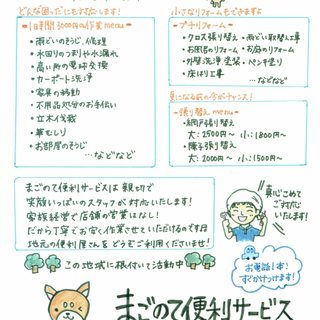 どんな困った にも対応します!
-1時間3000円の作業menu-
・雨どいのそうじ、修理
・水回りのつまりや水漏れ
・高い所の電球交換
・カーポート洗浄
・家具の移動
・不用品処分のお手伝い
・立木伐裁
・草むしり
・お部屋のそうじ
…などなど
小さなリフォームもできますよ
-プチリフォーム-
・クロス張り替え・雨どい取替え工事
・お風呂のリフォーム・お庭のリフォーム
・外壁洗浄、塗装・ペンキ塗り
・床はり工事
…などなど
夏になる前の今がチャンス!
-張り替えmenu-
・網戸張り替え
大:2500円〜 小:1800円〜
・障子張り替え
大:2000円〜 小:1500円〜
まごのて便利サービスは親切で
笑顔いっぱいのスタッフが対応いたします!
家族経営で店舗の営業はなし!
だから丁寧でお安く作業させていただけるのです
地元の便利屋さんをどうぞご利用くださいませ!
真心こめて
ご対応
いたします!
この地域に根付いて活動中
お電話1本!
すぐかけつけます!
まごのて便利サービス